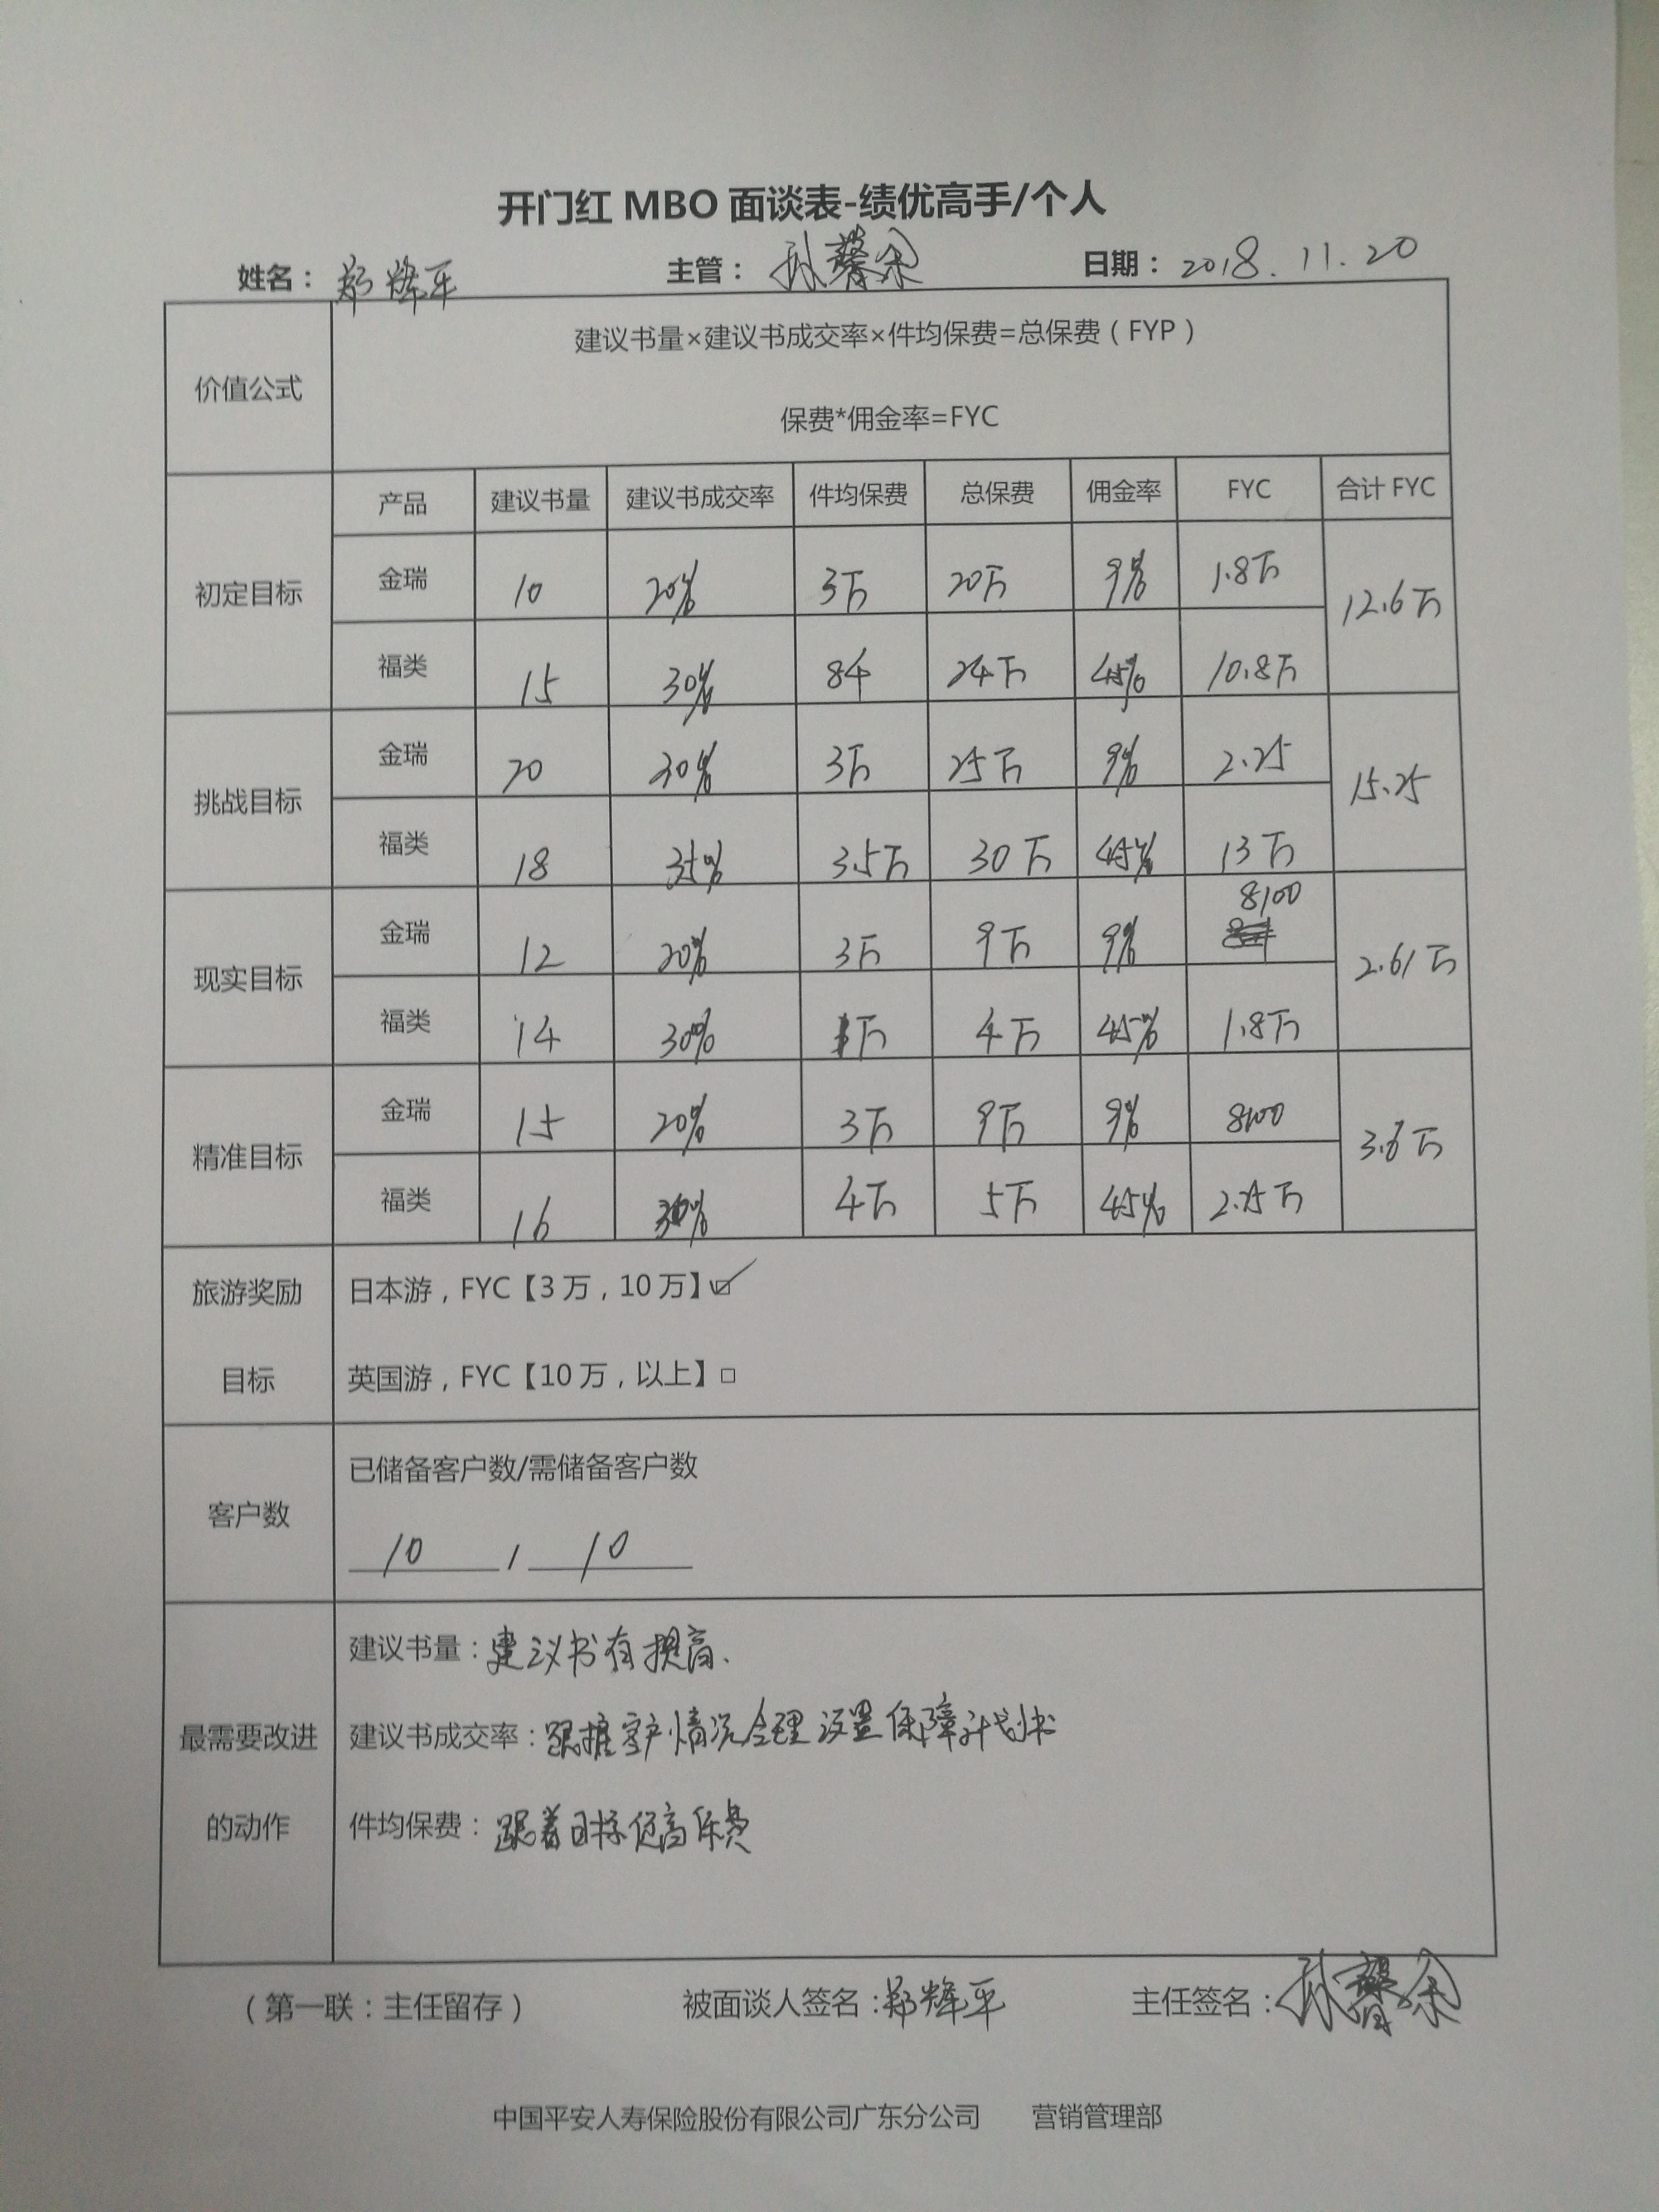 开门红 MBO 面谈表-绩优高手/个人
姓名：郑辉平 主管：孙馨余 日期：2018.11.20
价值公式
建议书量×建议书成交率×件均保费=总保费（FYP）
保费*佣金率=FYC
产品 建议书量 建议书成交率 件均保费 总保费 佣金率 FYC 合计 FYC
初定目标
金瑞 10 20% 3万 20万 9% 1.8万 12.6万
福类 15 30% 84 24万 45% 10.8万
挑战目标
金瑞 20 30% 3万 25万 9% 2.25 15.25
福类 18 35% 3.5万 30万 45% 13万
现实目标
金瑞 12 20% 3万 9万 9% 8100 2.61万
福类 14 30% 1万 4万 45% 1.8万
精准目标
金瑞 15 20% 3万 9万 9% 8100 3.6万
福类 16 30% 4万 5万 45% 2.25万
旅游奖励
目标
日本游，FYC【3万，10万】☑
英国游，FYC【10万，以上】□
客户数
已储备客户数/需储备客户数
10 / 10
最需要改进
的动作
建议书量：建议书有提高.
建议书成交率：跟据客户情况合理设置保障计划书
件均保费：跟着目标促高保费
（第一联：主任留存） 被面谈人签名：郑辉平 主任签名：孙馨余
中国平安人寿保险股份有限公司广东分公司 营销管理部